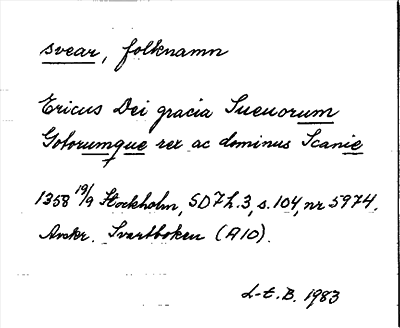 svear, folknamn
Ericus Dei gracia Sueuorum
Gotorumque rex ac dominus Scanie
1358 19/9 Stockholm, SD 7 h. 3, s. 104, nr 5974.
Avskr. Svartboken (A10).
L-E. B. 1983